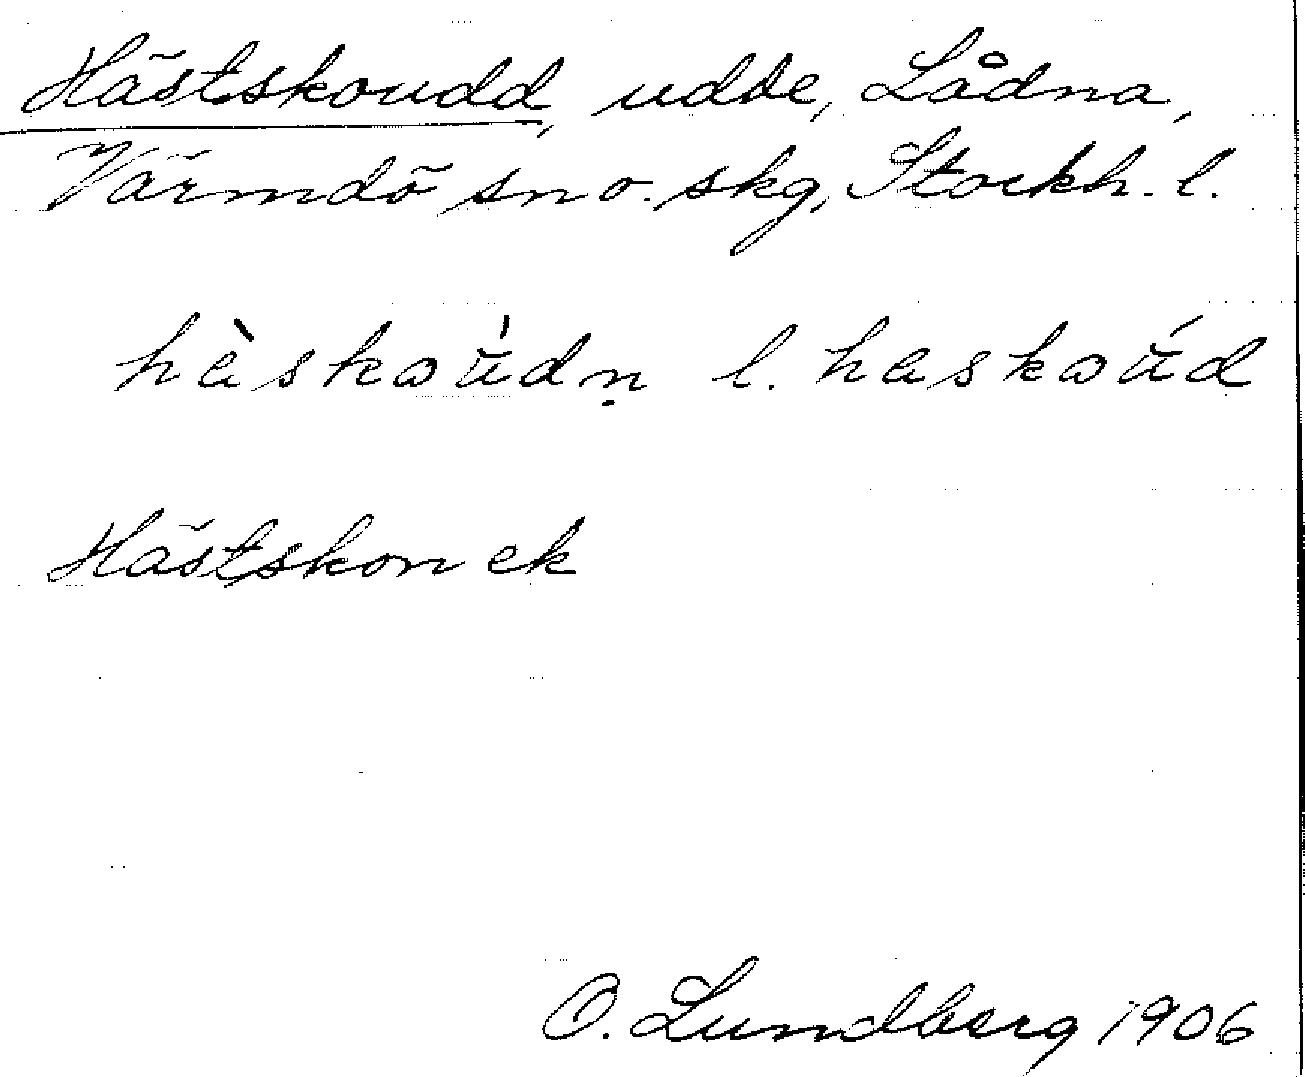 Hästskoudd, udde, Lådna,
Värmdö sn o. skg, Stockh. l.
hàskoǜdṇ l. haskoǘd
Hästskon ek
O. Lundberg 1906